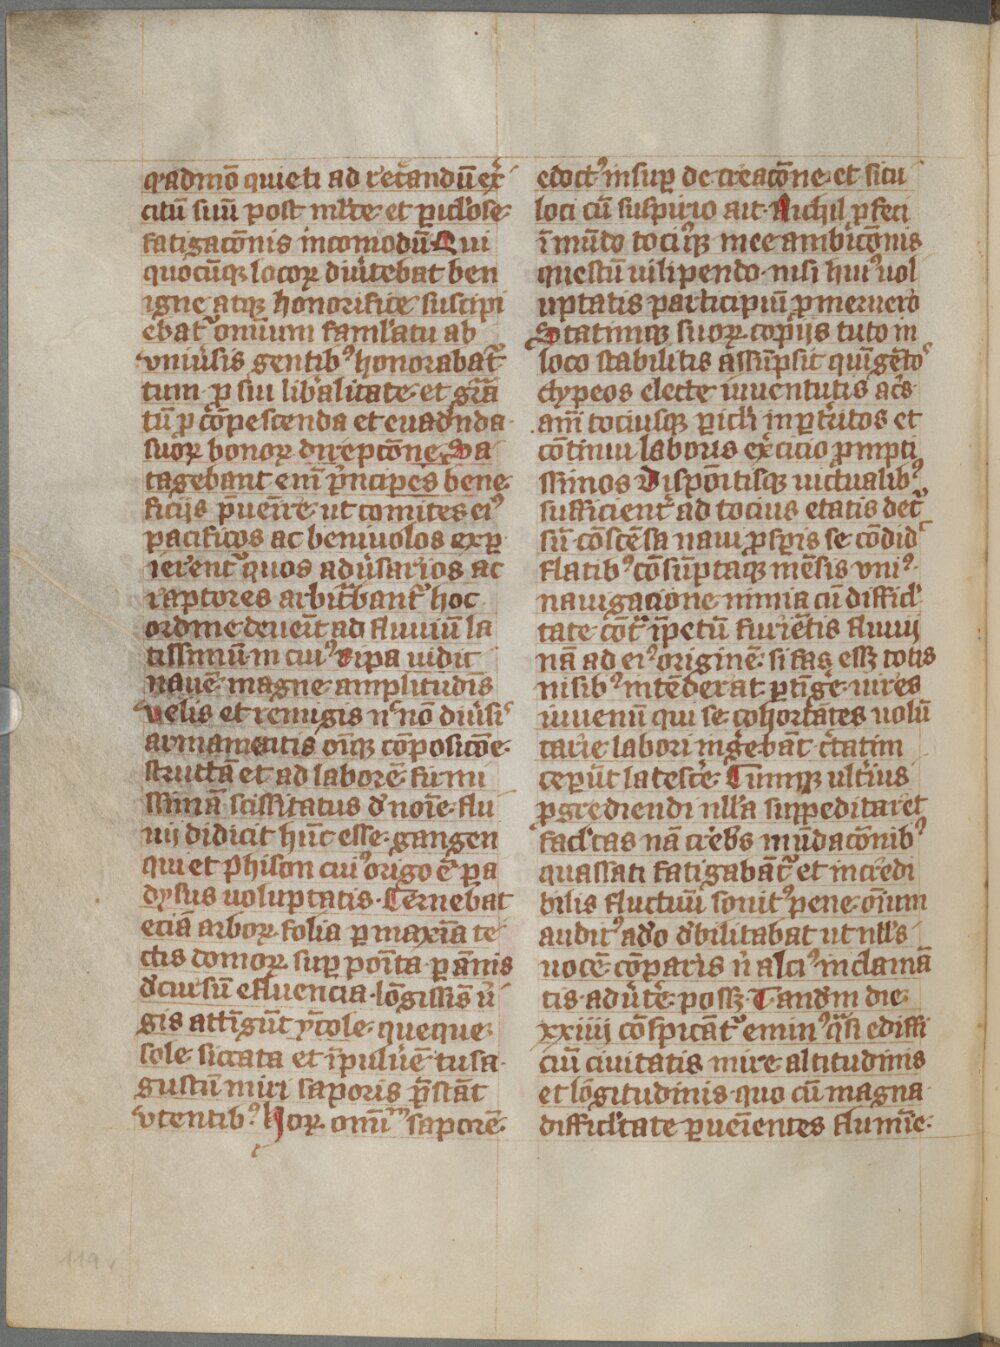 q̄admō quieti ad rec̄andū ex̄
citū suū post ml̄te et ꝑicl̄ose
fatigacōnis incomodū Qui
quocūqꝫ locoꝝ diūtebat ben
igne atqꝫ honorifice suscipi
ebat᷑ omnium faml̄atu ab
vniūsis gentib⁹ honorabat᷑
tum ꝓ sui lib̄alitate et gr̄a
tū ꝓ cōpescenda et euadn̄da
suoꝝ bonoꝝ direptōne Sa
tagebant em̄ p̄ncipes bene
ficijs p̄uen̄re ut comites ei⁹
pacificos ac beniuolos exꝑ
ierent᷑ quos adūsarios ac
raptores arbitr̄bant᷑ hoc
ordine deuen̄t ad fluuiū la
tissimum in cui⁹ ripa uidit
nauē magne amplitudīs
velis et remigis nc̄ nō diūsi
armamentis oīqꝫ cōposicōe
structā et ad laborē firmi
ssimā scissitatus d̄ noīe flu
uij didicit hūc esse gangen
qui et Phison cui⁹ origo ē pa
dysus uoluptatis Cernebat
eciā arboꝝ folia ꝑ maxīa te
ctis domoꝝ suꝑ poīta ꝑ āmis
dc̄ursū efluencia lōgissīs ū
gis attīgūt yc̄ole queque
sole siccata et īpulūē tusa
gustū miri saporis p̄stāt
vtentib⁹ Hoꝝ omīū saporē
edoct⁹ insuꝑ de creacōne et situ
loci cū suspirio ait Nichil ꝓfeci
ī mūdo tociusqꝫ mee ambicōnis
questū uilipendo nisi hui⁹ uol
uptatis participiū ꝓmeruero
Statimqꝫ suoꝝ copijs tuto in
loco stabilitis assūpsit quīgēto᷒
clypeos electe iuuentutis acs̄
am̄ tociusqꝫ ꝑicl̄i inꝑtr̄itos et
cōtinui laboris ex̄cicio ꝓmpti
ssimos Dispōitisqꝫ uictualib⁹
sufficient᷑ ad tocius etatis det᷑
sū cōscēsa naui ꝓsꝑis se cōdid᷒
flatib⁹ cōsūptaqꝫ mēsis vni⁹
nauigacione nimia cū difficl̄
tate cōt᷑ īpetū furiētis fluuij
nā ad ei⁹ originē si fas essꝫ totis
nisib⁹ intēderat ꝑtīge uires
iuuenū qui se cohortātes uolū
tarie labori ingēbāt c̄tatim
ceꝑūt latesc̄e Cūmqꝫ ult̄ius
ꝓgrediendi nll̄a suppeditaret
facl̄tas nā crebs̄ inūdacōnib⁹
quassati fatigabāt᷑ et incr̄edi
bilis fluctuū sonit⁹ pene oīum
audit⁹ ad̄o d̄bilitabat ut nll̄s
uocē cōparis n̄ alci⁹ inclamā
tis adūtē possꝫ Tandm̄ die
xxiiij cōspicāt᷑ emin⁹ q̄si ediffi
ciū ciuitatis mire altitudinis
et lōgitudinis quo cū magna
difficl̄tate ꝑueīentes flumīe